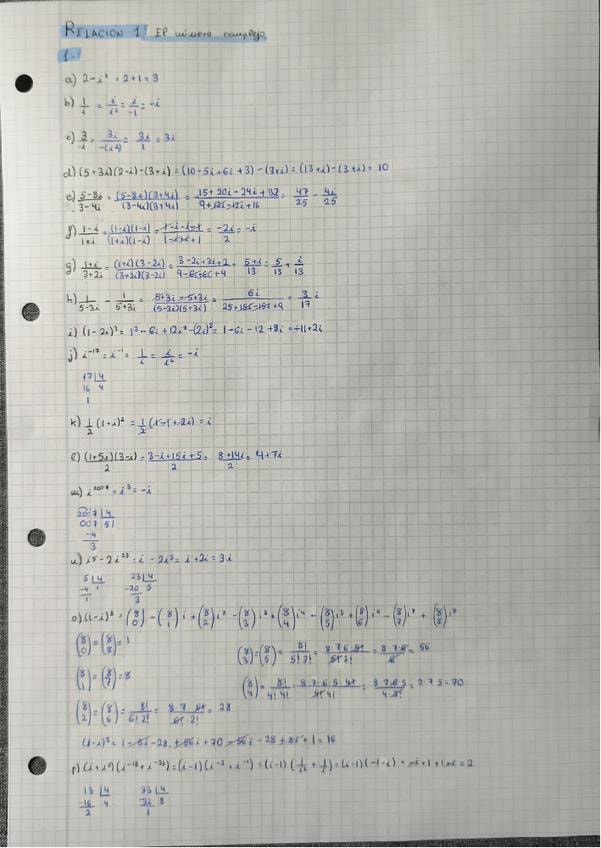 RELACIÓN 1: El número complejo
1.-
a) 2-i² = 2+1 = 3
b) 1/i = i/i² = i/-1 = -i
c) 3/-i = 3i/-(i²) = 3i/1 = 3i
d) (5+3i)(2-i)-(3+i) = (10-5i+6i+3)-(3+i) = (13+i)-(3+i) = 10
e) 5-8i/3-4i = (5-8i)(3+4i)/(3-4i)(3+4i) = 15+20i-24i+32/9+12i-12i+16 = 47/25 - 4i/25
f) 1-i/1+i = (1-i)(1-i)/(1+i)(1-i) = 1-i-i-1/1-i+i+1 = -2i/2 = -i
g) 1+i/3+2i = (1+i)(3-2i)/(3+2i)(3-2i) = 3-2i+3i+2/9-6i+6i+4 = 5+i/13 = 5/13 + i/13
h) 1/5-3i - 1/5+3i = 5+3i-5+3i/(5-3i)(5+3i) = 6i/25+15i-15i+9 = 3/17 i
i) (1-2i)³ = 1³-6i+12i²-(2i)³ = 1-6i-12+8i = -11+2i
j) i⁻¹⁷ = i⁻¹ = 1/i = i/i² = -i
17 | 4
16 4
1
k) 1/2 (1+i)² = 1/2 (1-1+2i) = i
l) (1+5i)(3-i)/2 = 3-i+15i+5/2 = 8+14i/2 = 4+7i
m) i²⁰⁰⁷ = i³ = -i
2007 | 4
007 51
-4
3
n) i⁵-2i²³ = i-2i³ = i+2i = 3i
5 | 4 23 | 4
-4 1 -20 5
1 3
o) (1-i)⁸ = (8 0) - (8 1) i + (8 2) i² - (8 3) i³ + (8 4) i⁴ - (8 5) i⁵ + (8 6) i⁶ - (8 7) i⁷ + (8 8) i⁸
(8 0) = (8 8) = 1
(8 3) = (8 5) = 8!/5!3! = 8·7·6·5!/5!3! = 8·7·6/6 = 56
(8 1) = (8 7) = 8
(8 4) = 8!/4!4! = 8·7·6·5·4!/4!4! = 8·7·6·5/4·3! = 2·7·5 = 70
(8 2) = (8 6) = 8!/6!2! = 8·7·6!/6!2! = 28
(1-i)⁸ = 1-8i-28+56i+70-56i-28+8i+1 = 16
p) (i+i²)(i⁻¹⁸+i⁻³³) = (i-1)(i⁻²+i⁻¹) = (i-1)(1/i² + 1/i) = (i-1)(-1-i) = -i+1+1+i = 2
18 | 4 33 | 4
-16 4 -32 8
2 1